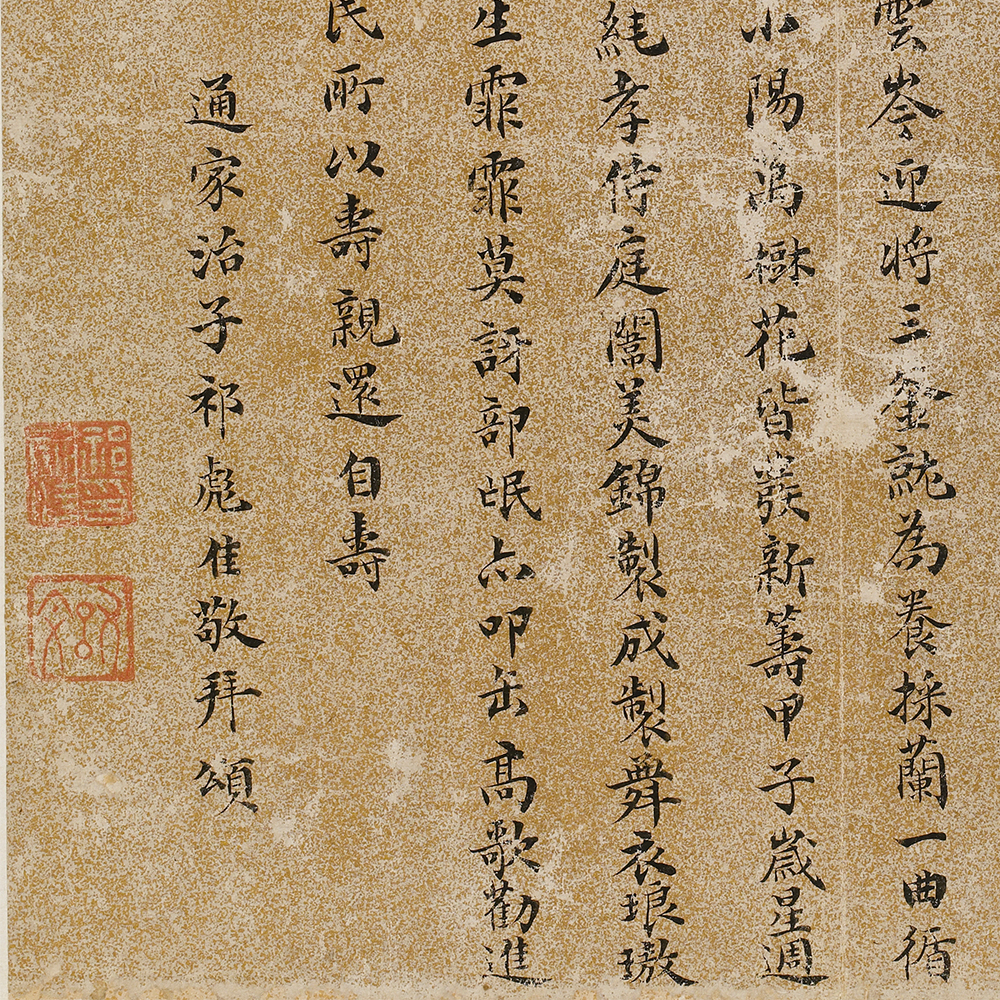 雲岑迎將三釜就為養採蘭一曲循
小陽萬樹花皆發新籌甲子歲星週
純孝侍庭闈美錦製成製舞衣琅璈
生霏霏莫訝部氓亦叩缶高歌勸進
民所以壽親還自壽
通家治子祁彪佳敬拜頌